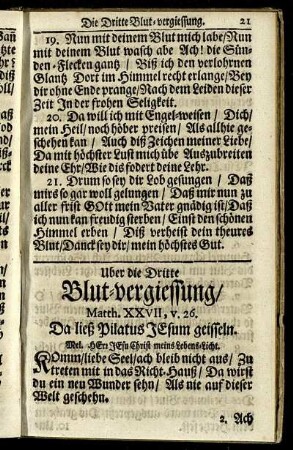 Die Dritte Blut-vergiessung. 21
19. Nun mit deinem Blut mich labe/ Nun
mit deinem Blut wasch abe Ach! die Sün-
den-Flecken gantz / Biß ich den verlohrnen
Glantz Dort im Himmel recht erlange/ Bey
dir ohne Ende prange/ Nach dem Leiden dieser
Zeit In der frohen Seligkeit.
20. Da will ich mit Engel-weisen / Dich/
mein Heil/ noch höher preisen/ Als allhie ge-
schehen kan / Auch diß Zeichen meiner Liebe/
Da mit höchster Lust mich übe Auszubreiten
deine Ehr/ Wie dis fodert deine Lehr.
21. Drum so sey dir Lob gesungen / Daß
mirs so gar woll gelungen / Daß mir nun zu
aller frist GOtt mein Vater gnädig ist/ Daß
ich nun kan freudig sterben / Einst den schönen
Himmel erben / Diß verheist dein theures
Blut/ Danck sey dir/ mein höchstes Gut.
Uber die Dritte
Blut-vergiessung/
Matth. XXVII, v. 26.
Da ließ Pilatus JEsum geisseln.
Mel. HErr JEsu Christ meins Lebens-Licht.
KOmm/ liebe Seel/ ach bleib nicht aus/ Zu
treten mit in das Richt-Hauß/ Da wirst
du ein neu Wunder sehn/ Als nie auf dieser
Welt geschehn.
2. Ach